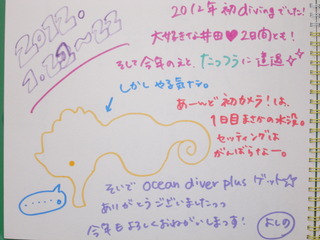 2012.
1.21〜22
2012年 初divingでした!
大好きな井田♥2日間とも!
そして今年のえと、たっつうに遭遇☆
しかし やる気ナシ。
あーんど 初カメラ!は、
1日目まさかの水没。
セッティングは
がんばらなー。
そいで ocean diver plus ゲット☆
ありがとうございましたっっ
今年もよろしくおねがいします!
よしの